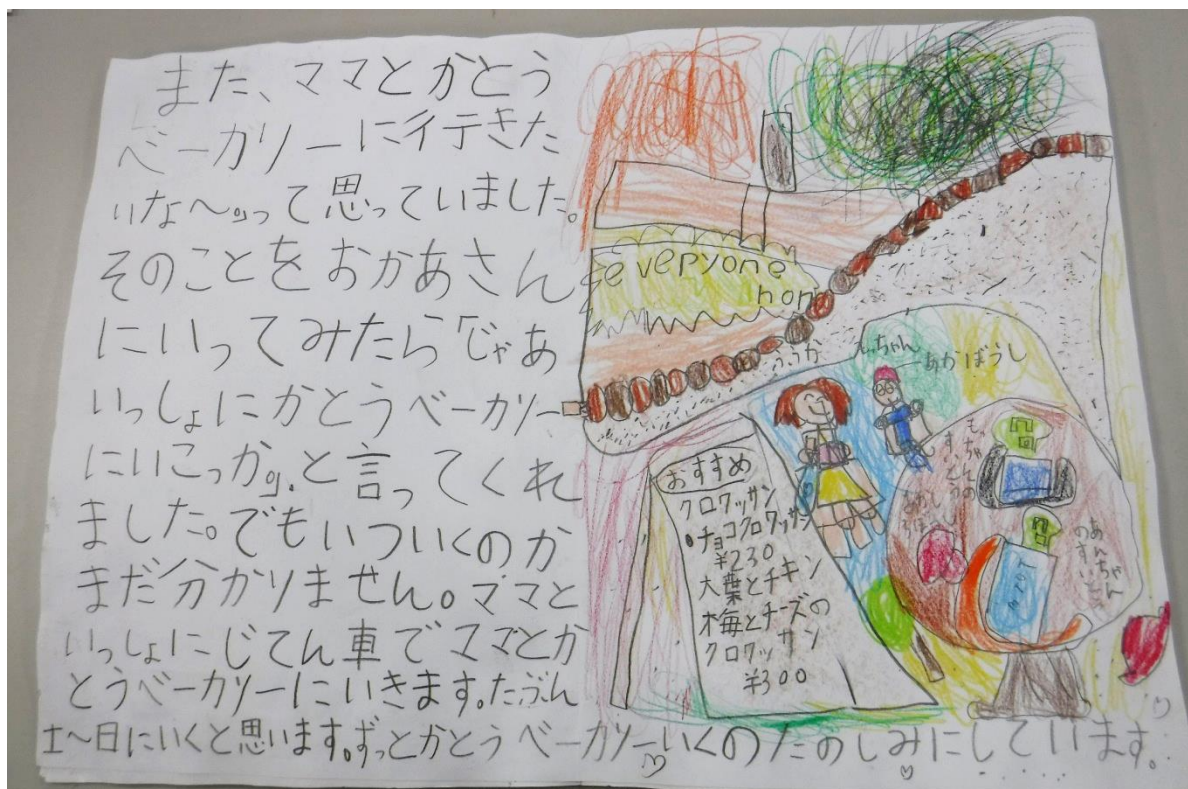 また、ママとかとう
ベーカリーに行きた
いな〜。って思っていました。
そのことをおかあさん
にいってみたら「じゃあ
いっしょにかとうベーカリー
にいこっか」。と言ってくれ
ました。でもいついくのか
まだ分かりません。ママと
いっしょにじてん車でママとか
とうベーカリーにいきます。たぶん
土〜日にいくと思います。ずっとかとうベーカリーいくのたのしみにしています。
everyone
hon
ふうか
えっちゃん
あかぼうし
おすすめ
クロワッサン
・チョコクロワッサン
¥230
大葉とチキン
梅とチーズの
クロワッサン
¥300
あんちゃん
のすいとう